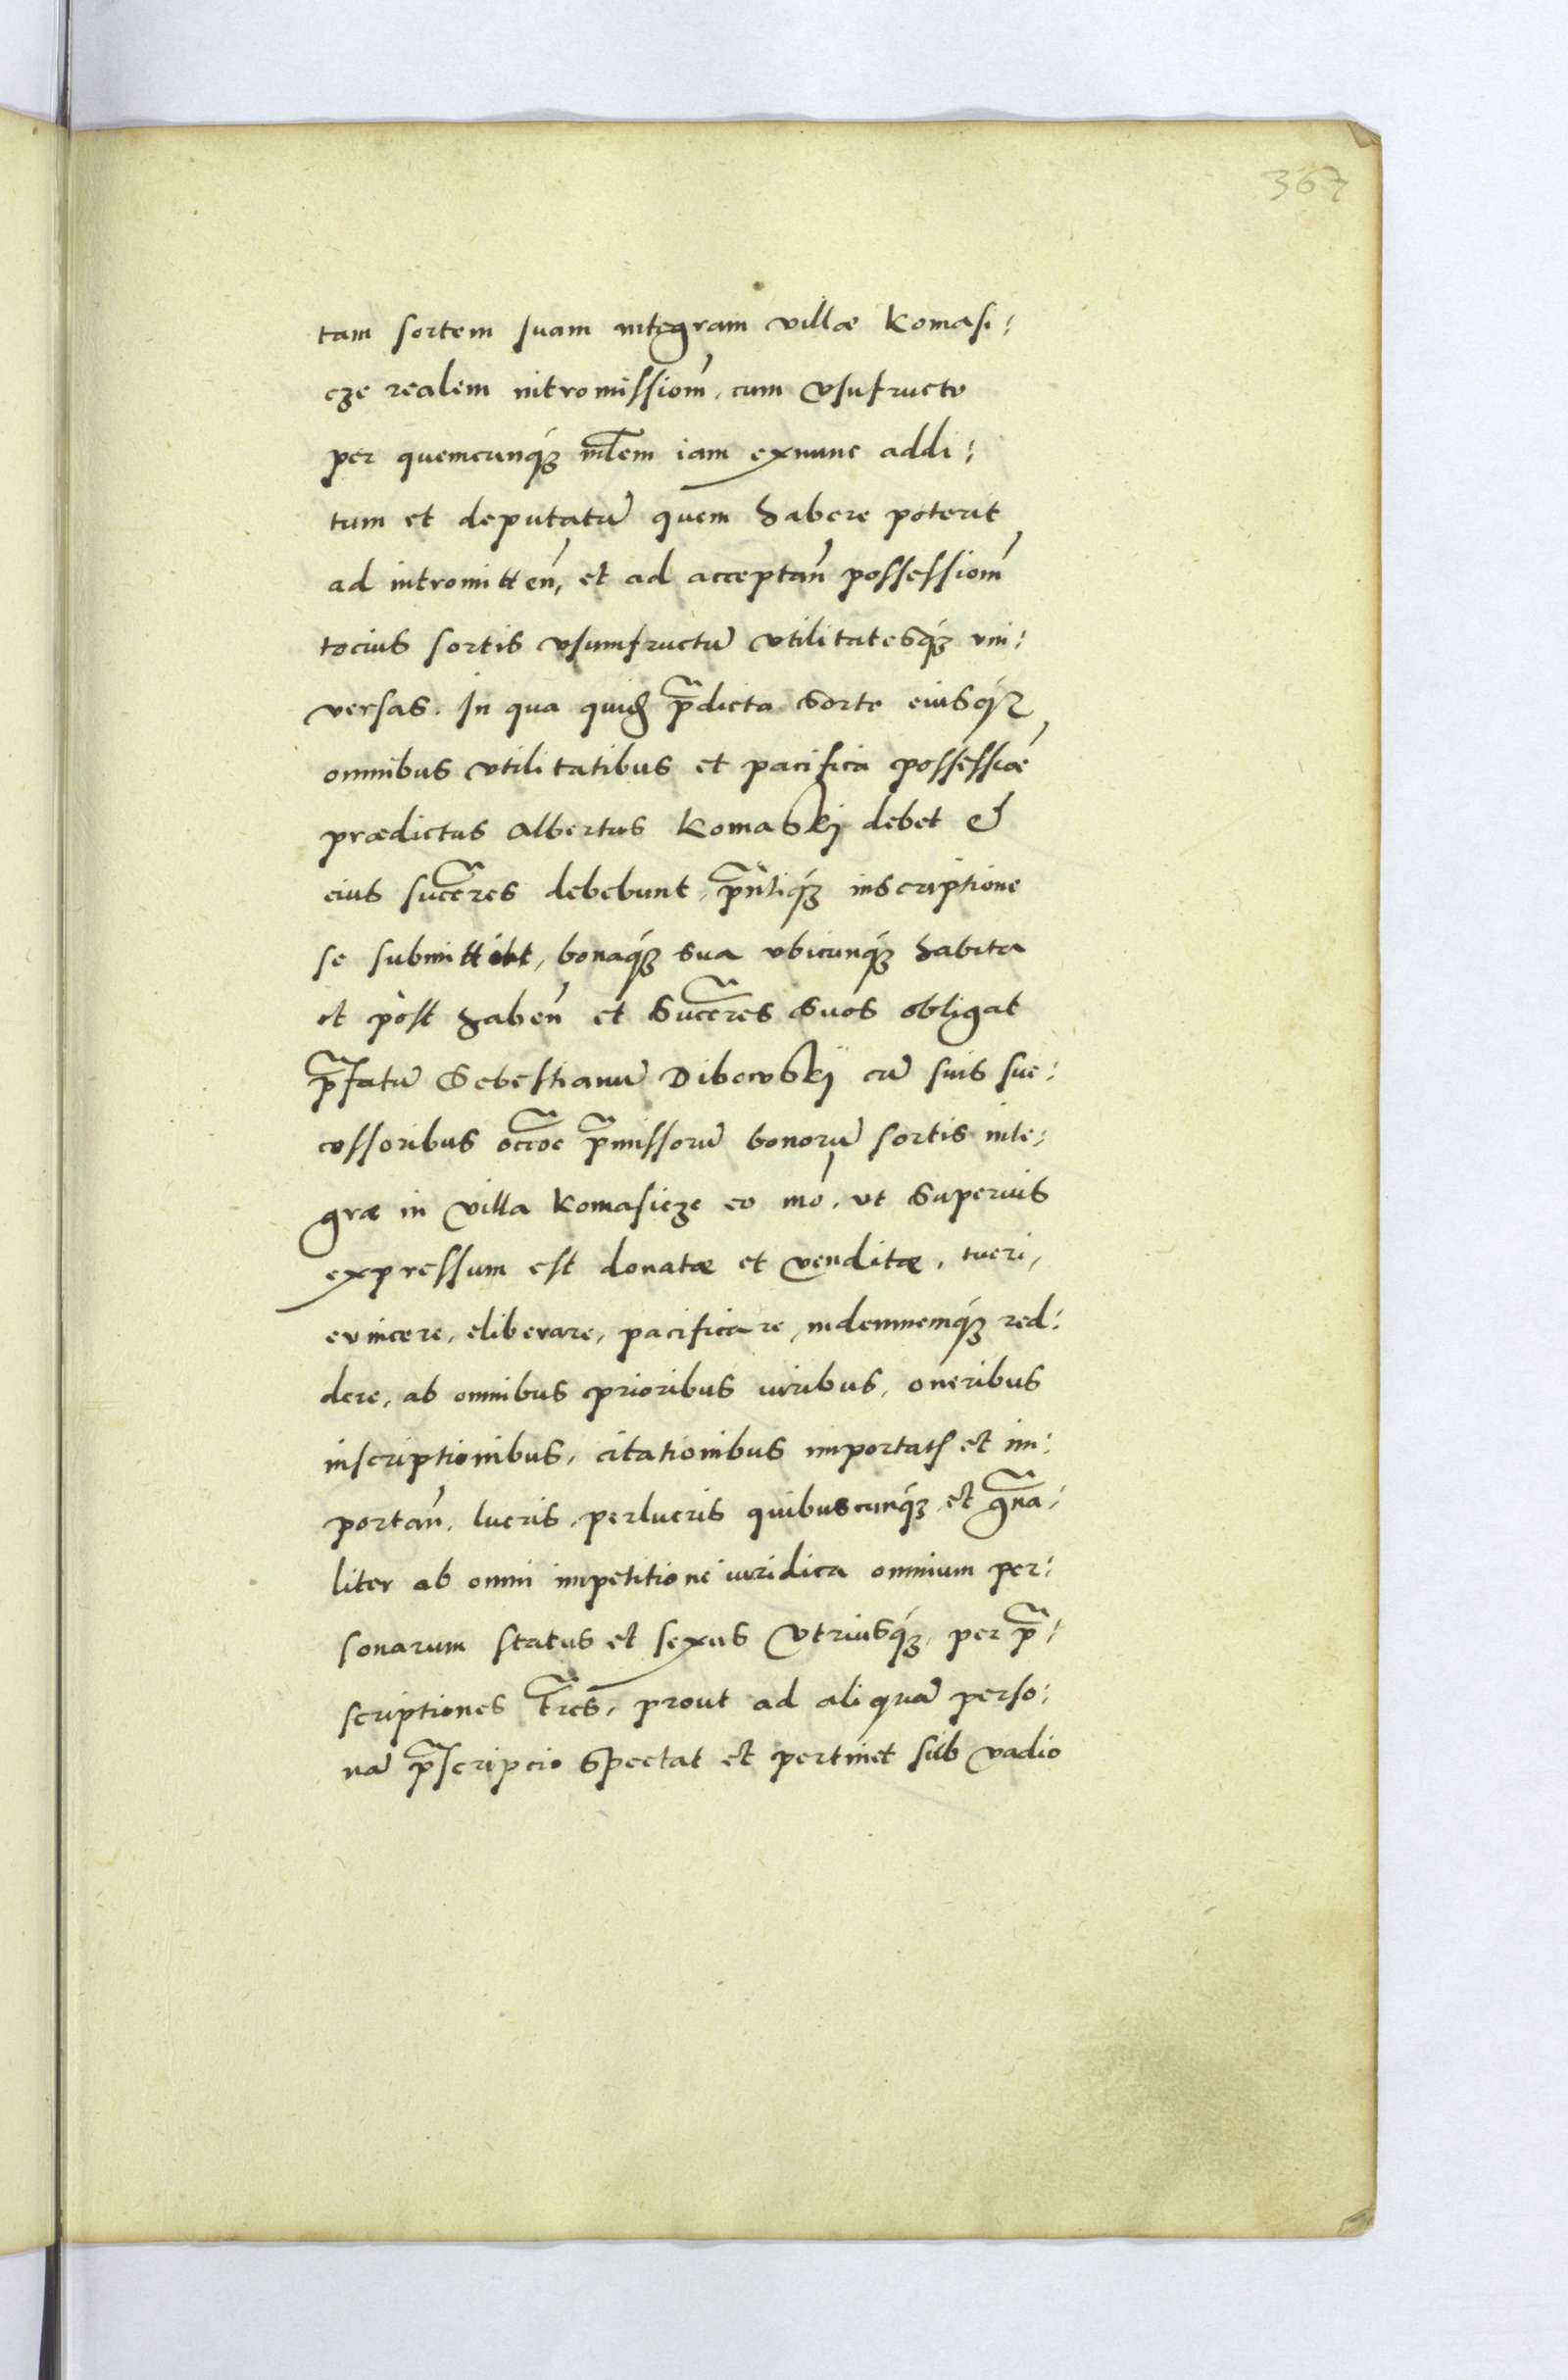 367
tam sortem suam integram villæ Komasi:
cze realem intromissiom̃, cum vsufructo
per quemcunq́ꝫ mĩlem iam exnunc addi:
tum et deputatũ quem habere poterit
ad intromitteñ, et ad acceptañ possessiom̃
tocius sortis vsumfructũ vtilitatesq́ꝫ vni:
versas. In qua quid̃ p̃dicta sorte eiusq́ꝫ
omnibus vtilitatibus et pacifica possessioẽ
prædictus Albertus Komaskj debet &
eius succ̃res debebunt, p̃ntiq́ꝫ inscriptione
se submittit, bonaq́ꝫ sua vbicunq́ꝫ habita
et post habeñ et Succ̃res Suos obligat
p̃fatũ Sebestianũ Dibowskÿ cũ suis suc:
cessoribus occ̃oe p̃missorũ bonorũ sortis inte:
græ in villa Komasicze eo mó, vt Superius
expressum est donatæ et venditæ, tueri,
evincere, eliberare, pacificare, indemnemq́ꝫ red:
dere, ab omnibus prioribus iuribus, oneribus
inscriptionibus, citationibus importatꝭ et im:
portañ, lucris, perlucris quibuscunq́ꝫ, et gña:
liter ab omni impetitione iuridica omnium per:
sonarum status et sexus vtriusq́ꝫ, per p̃:
scriptiones tr̃es, prout ad aliquã perso:
nã p̃scripcio Spectat et pertinet sub vadio